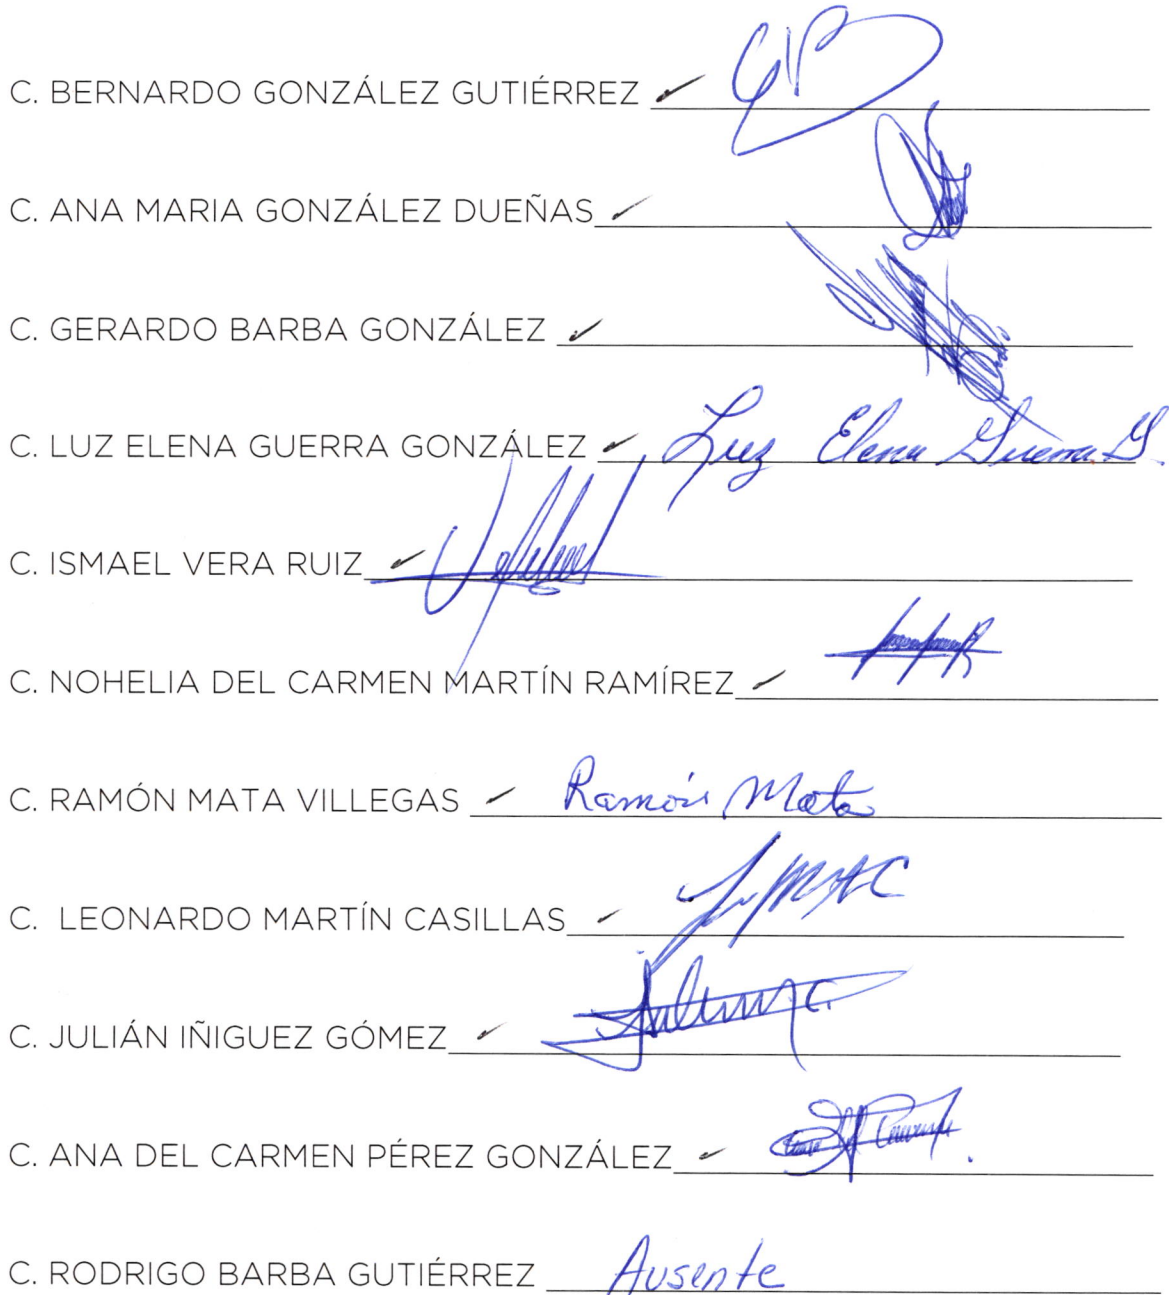 C. BERNARDO GONZÁLEZ GUTIÉRREZ
C. ANA MARIA GONZÁLEZ DUEÑAS
C. GERARDO BARBA GONZÁLEZ
C. LUZ ELENA GUERRA GONZÁLEZ Luz Elena Guerra G.
C. ISMAEL VERA RUIZ
C. NOHELIA DEL CARMEN MARTÍN RAMÍREZ
C. RAMÓN MATA VILLEGAS Ramón Mata
C. LEONARDO MARTÍN CASILLAS
C. JULIÁN IÑIGUEZ GÓMEZ
C. ANA DEL CARMEN PÉREZ GONZÁLEZ
C. RODRIGO BARBA GUTIÉRREZ Ausente